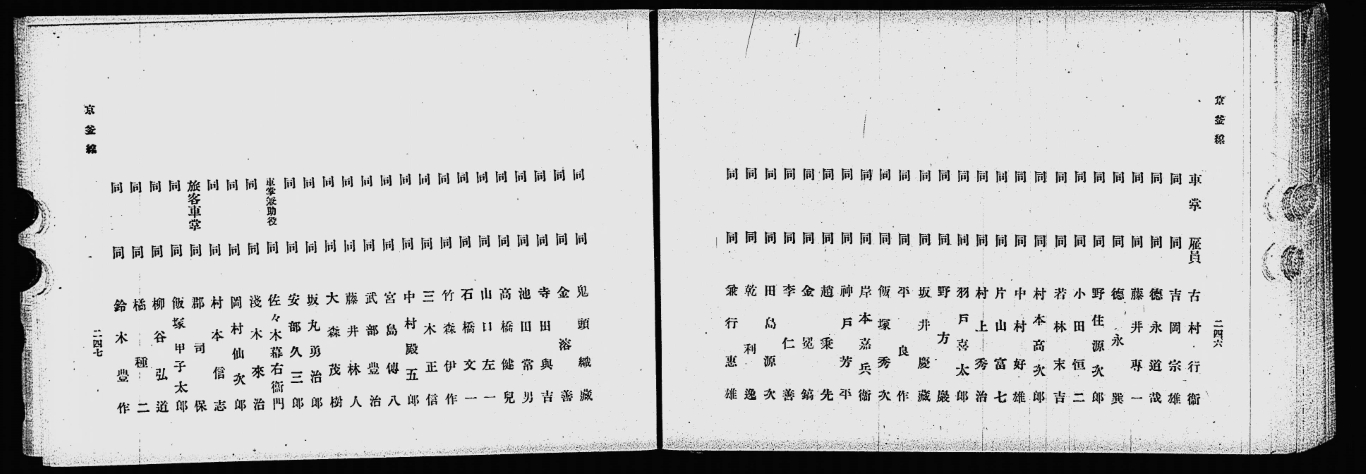 京釜線
二四六
車掌 雇員 古村行衞
同 同 吉岡宗雄
同 同 德永道哉
同 同 藤井專一
同 同 德永巽
同 同 野住源次郎
同 同 小田恒二
同 同 若林末吉
同 同 村本高次郎
同 同 中村好雄
同 同 片山富七
同 同 村上秀治
同 同 羽戶喜太郎
同 同 野方嚴
同 同 坂井慶藏
同 同 平良作
同 同 飯塚秀次
同 同 岸本嘉兵衞
同 同 神戶芳平
同 同 趙秉先
同 同 金冕鎬
同 同 李仁善
同 同 田島源次
同 同 乾利逸
同 同 兼行惠雄
同 同 鬼頭織藏
同 同 金溶善
同 同 寺田與吉
同 同 池田常男
同 同 高橋健兒
同 同 山口左一
同 同 石橋文一
同 同 竹森伊作
同 同 三木正信
同 同 中村殿五郎
同 同 宮島傳八
同 同 武部豊治
同 同 藤井林人
同 同 大森茂樹
同 同 坂丸勇治郎
同 同 安部久三郎
車掌兼助役 同 佐々木幕右衞門
同 同 淺木來治
同 同 岡村仙次郎
同 同 村本信志
旅客車掌 同 郡司保
同 同 飯塚甲子太郎
同 同 柳谷弘道
同 同 橘種二
同 同 鈴木豊作
京釜線
二四七